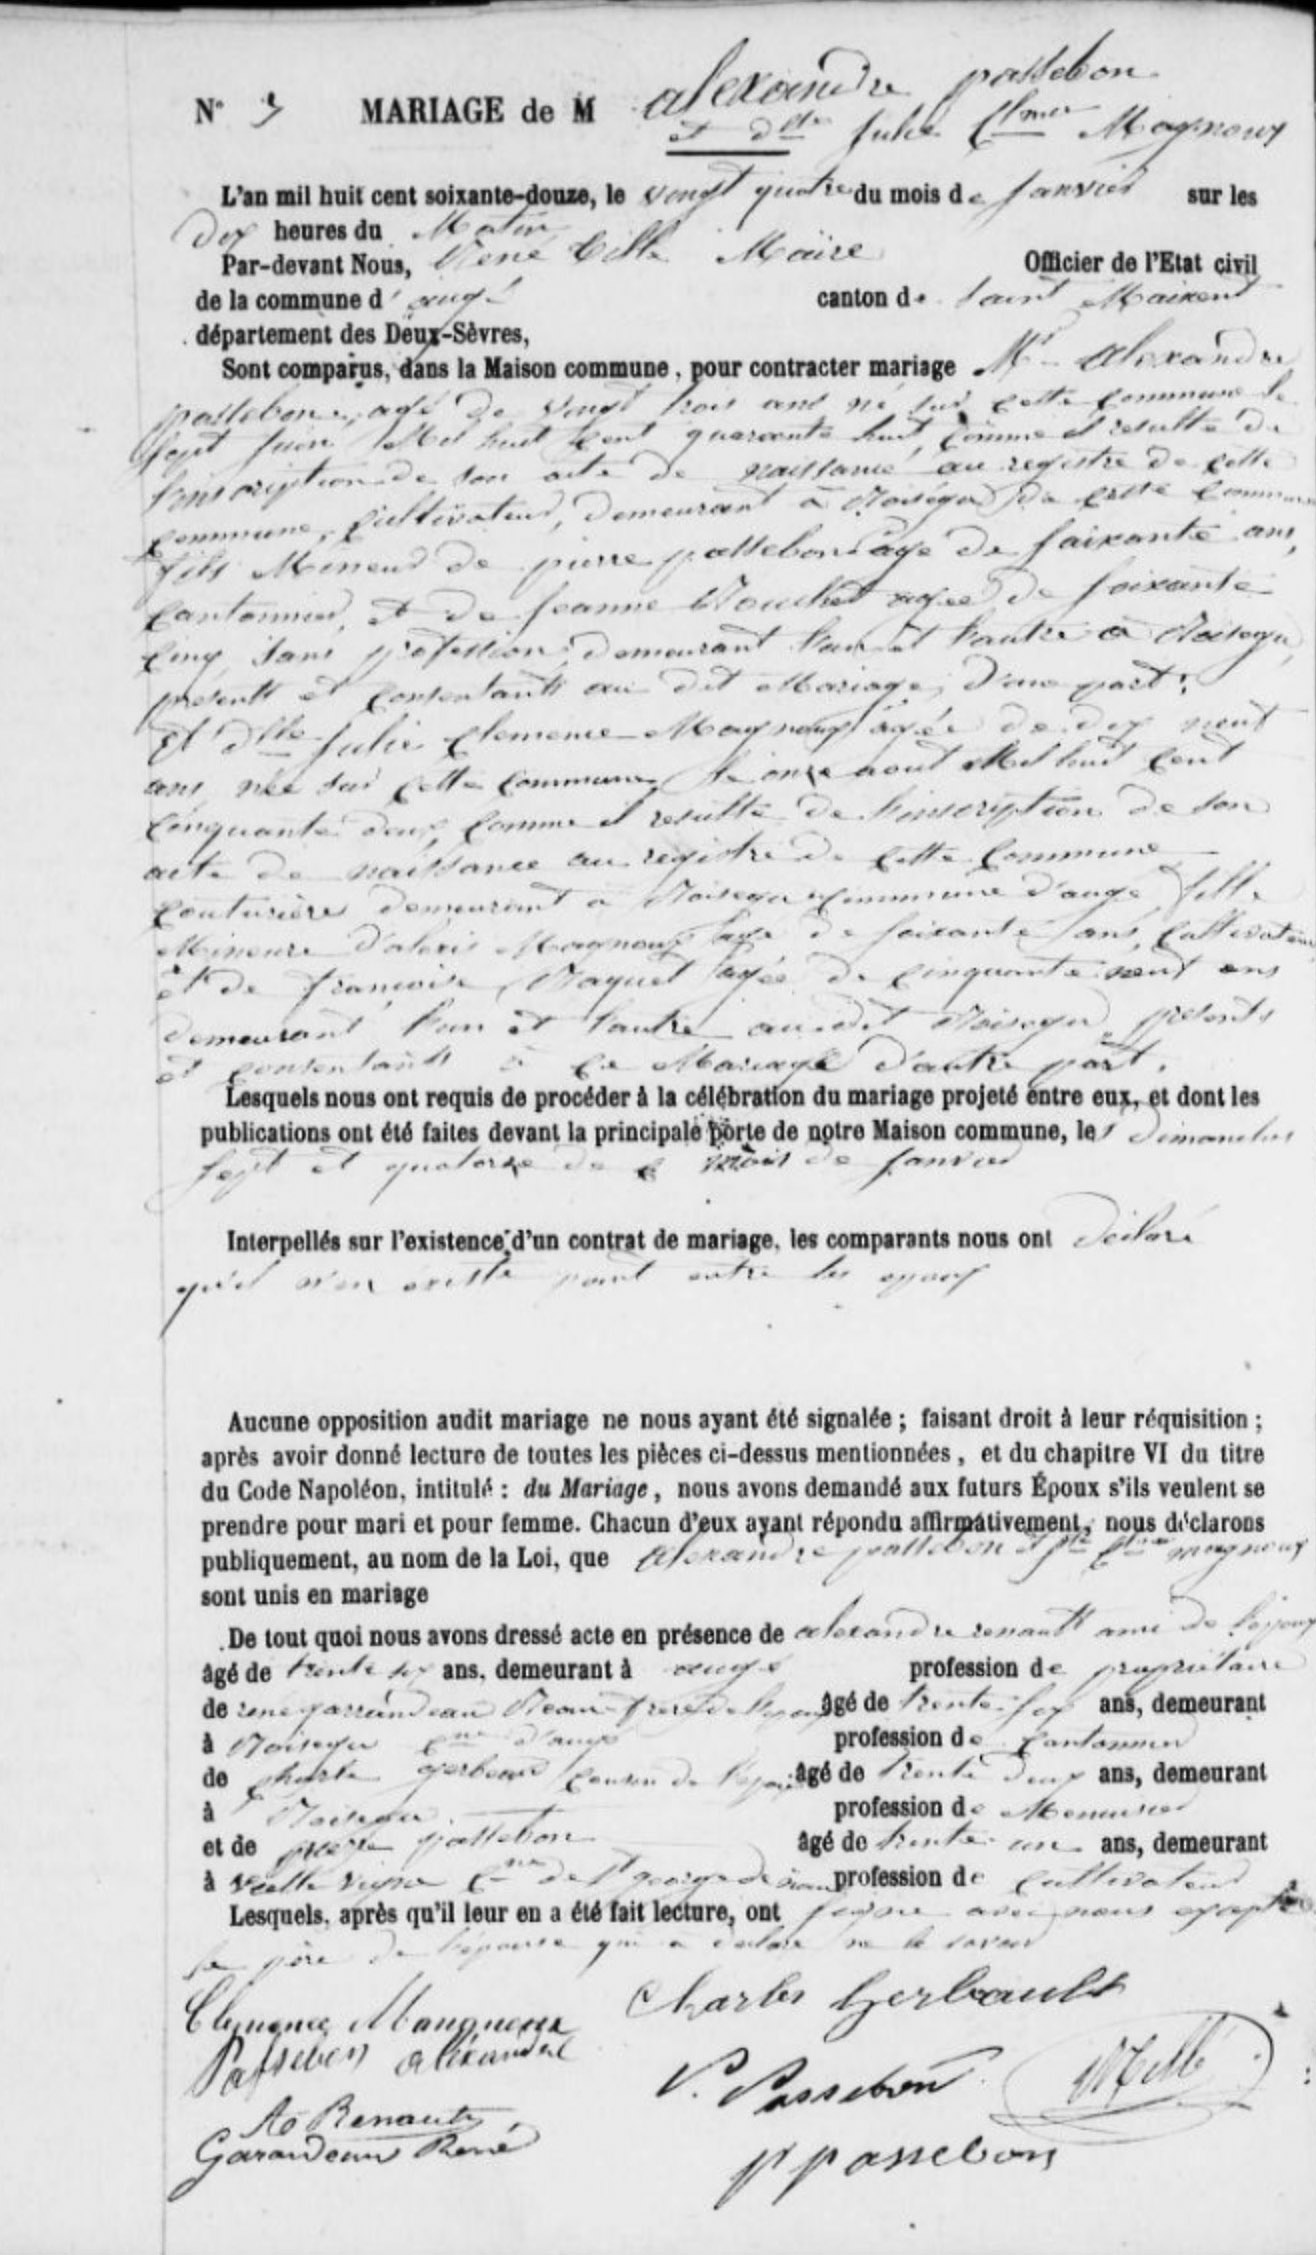 N° 3 MARIAGE de M alexandre passebon
et dlle Julie Clmce Magnoux
L'an mil huit cent soixante-douze, le vingt quatre du mois de Janvier sur les
dix heures du Matin
Par-devant Nous, René Maire Officier de l'Etat civil
de la commune d'augé canton de Saint Maixent
département des Deux-Sèvres,
Sont comparus, dans la Maison commune, pour contracter mariage Mr alexandre
passebon, agé de vingt trois ans né sur cette commune le
sept Juin Mil huit cent quarante huit, comme il resulte de
l'inscription de son acte de naissance au registre de cette
commune, cultivateur, demeurant à de cette commune
fils Mineur de pierre passebon agé de soixante ans,
cantonnier, et de Jeanne agée de soixante
cinq sans profession, demeurant l'un et l'autre à
présents et consentants au dit Mariage, d'une part;
Et dlle Julie Clemence Magnoux agée de dix neuf
ans née sur cette commune le onze aout Mil huit cent
cinquante deux comme il resulte de l'inscription de son
acte de naissance au registre de cette commune
couturière demeurant à commune d'augé fille
Mineure d'alexis Magnoux agé de soixante ans, cultivateur
et de françoise agée de cinquante neuf ans
demeurant l'un et l'autre au dit présents
et consentants à ce Mariage d'autre part.
Lesquels nous ont requis de procéder à la célébration du mariage projeté entre eux, et dont les
publications ont été faites devant la principale porte de notre Maison commune, les dimanches
sept et quatorze de ce mois de Janvier
Interpellés sur l'existence d'un contrat de mariage, les comparants nous ont déclaré
qu'il n'en existe point entre les epoux
Aucune opposition audit mariage ne nous ayant été signalée ; faisant droit à leur réquisition ;
après avoir donné lecture de toutes les pièces ci-dessus mentionnées, et du chapitre VI du titre
du Code Napoléon, intitulé : du Mariage, nous avons demandé aux futurs Époux s'ils veulent se
prendre pour mari et pour femme. Chacun d'eux ayant répondu affirmativement, nous déclarons
publiquement, au nom de la Loi, que alexandre passebon et magnoux
sont unis en mariage
De tout quoi nous avons dressé acte en présence de alexandre renault ami de l'epoux
âgé de trente six ans, demeurant à augé profession de propriétaire
de rene garrandeau Beau frere de l'epoux âgé de trente six ans, demeurant
à Cne d'augé profession de cantonnier
de charle gerbeau cousin de âgé de trente deux ans, demeurant
à profession de Menuisier
et de pierre passebon âgé de trente un ans, demeurant
à Cne de St george de profession de cultivateur
Lesquels, après qu'il leur en a été fait lecture, ont signé avec nous excepté
le père de l'épouse qui a declaré ne le savoir
Clemence Mangneux Charles Gerbault
Passebon alexandre
P. Passebon
Ae Renault
Garandeau René
P passebon